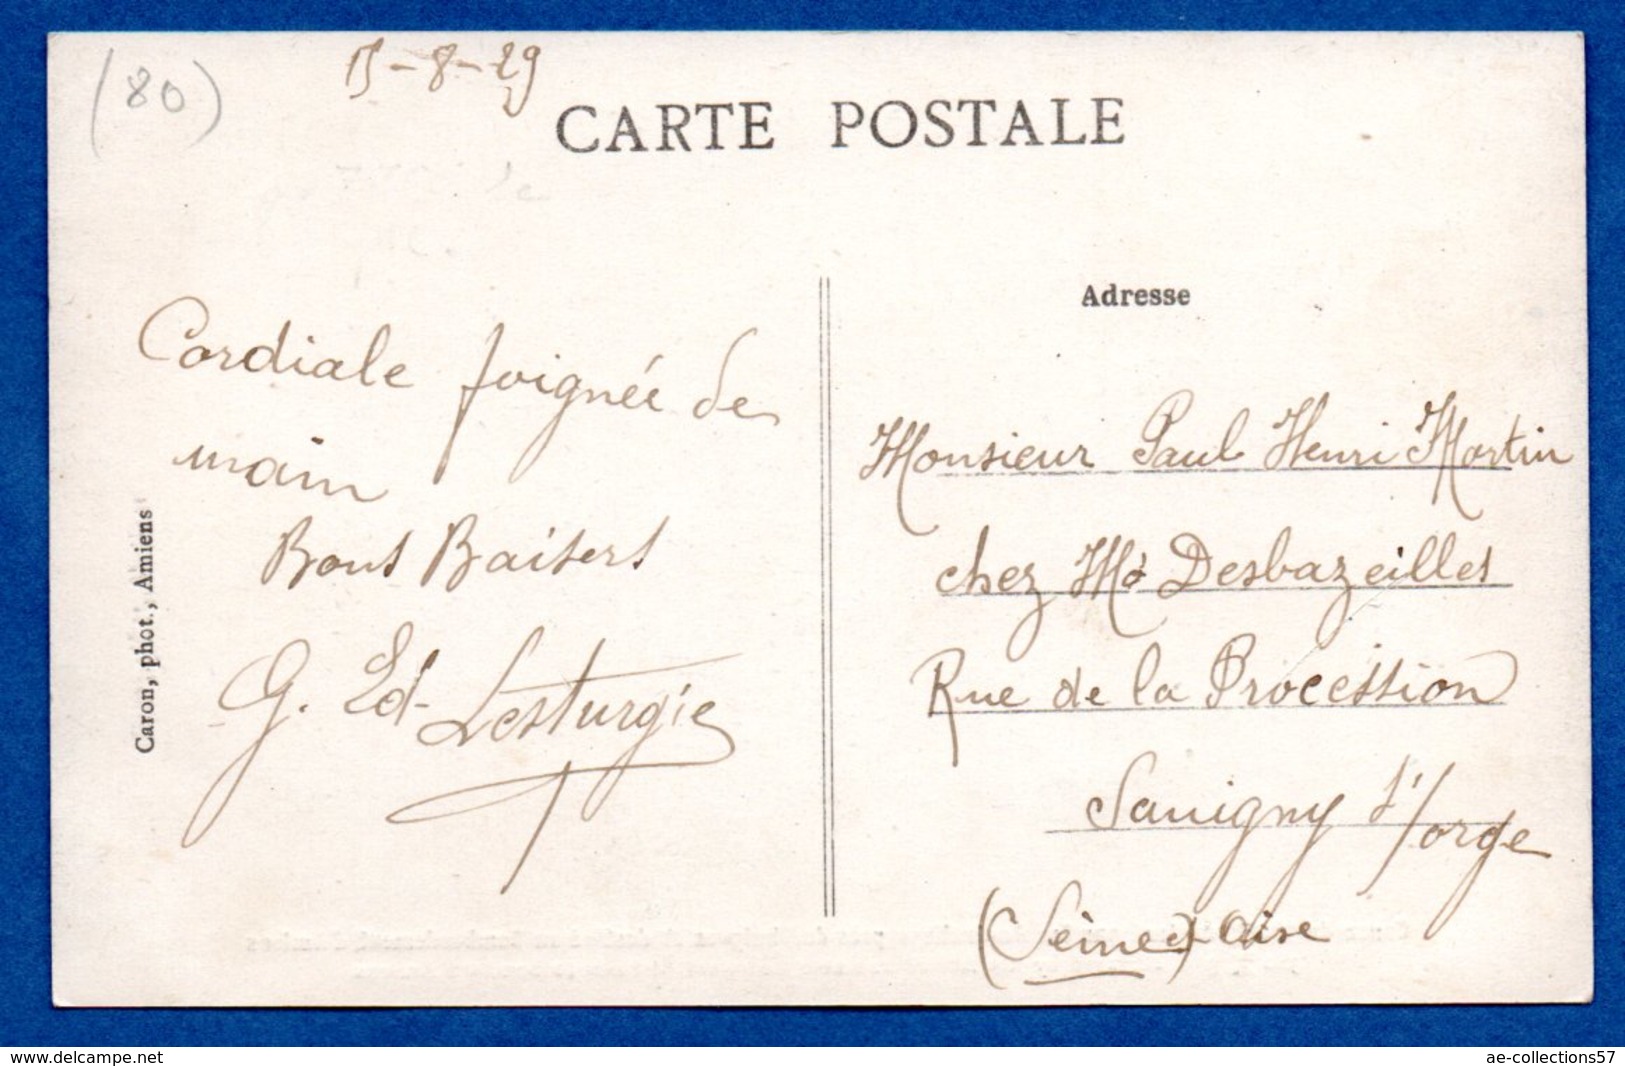 (80)
15-8-29
CARTE POSTALE
Cordiale poignée de
main
Bons Baisers
G. Ed. Lesturgie
Caron, phot., Amiens
Adresse
Monsieur Paul Henri Martin
chez Mr Desbazeilles
Rue de la Procession
Savigny s/orge
(Seine et Oise
www.delcampe.net
ae-collections57